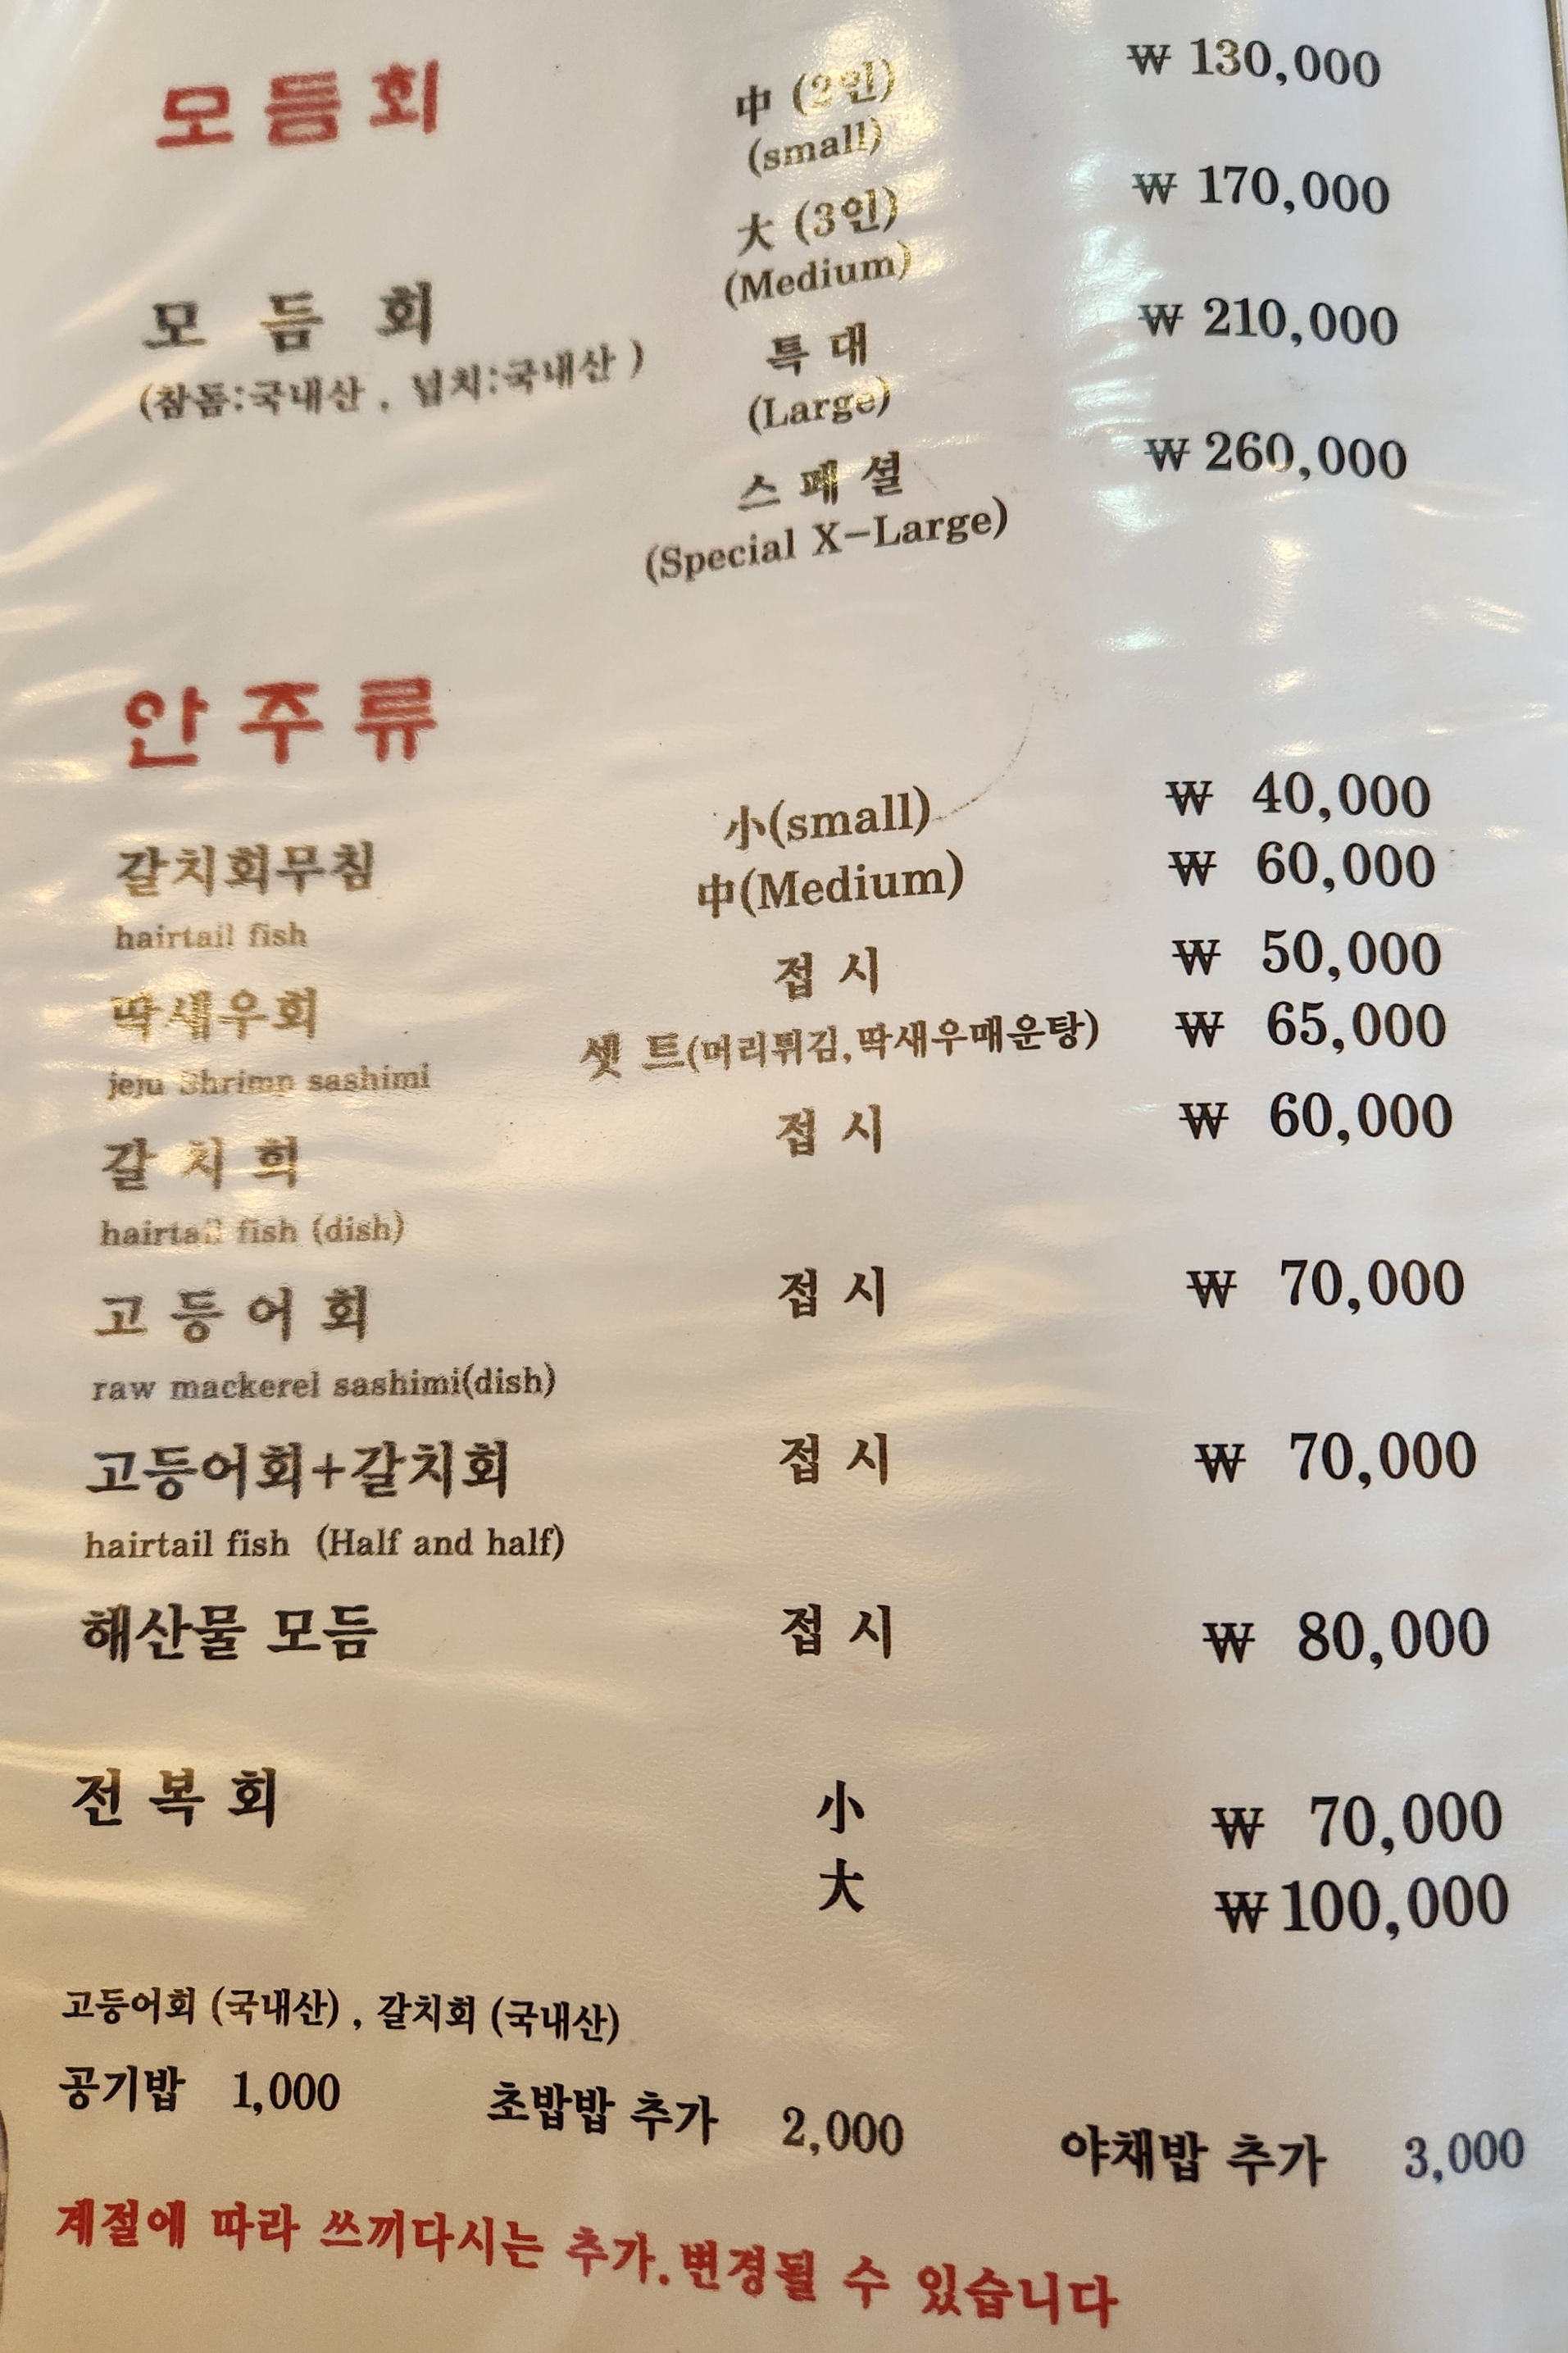 모듬회
中 (2인) ₩ 130,000
(small)
大 (3인) ₩ 170,000
(Medium)
모 듬 회
(참돔:국내산 , 넙치:국내산 )
특 대 ₩ 210,000
(Large)
스 페 셜 ₩ 260,000
(Special X-Large)
안주류
갈치회무침 小(small) ₩ 40,000
hairtail fish 中(Medium) ₩ 60,000
딱새우회 접 시 ₩ 50,000
jeju Shrimp sashimi 셋 트(머리튀김,딱새우매운탕) ₩ 65,000
갈 치 회 접 시 ₩ 60,000
hairtail fish (dish)
고 등 어 회 접 시 ₩ 70,000
raw mackerel sashimi(dish)
고등어회+갈치회 접 시 ₩ 70,000
hairtail fish (Half and half)
해산물 모듬 접 시 ₩ 80,000
전 복 회 小 ₩ 70,000
大 ₩ 100,000
고등어회 (국내산) , 갈치회 (국내산)
공기밥 1,000 초밥밥 추가 2,000 야채밥 추가 3,000
계절에 따라 쓰끼다시는 추가.변경될 수 있습니다